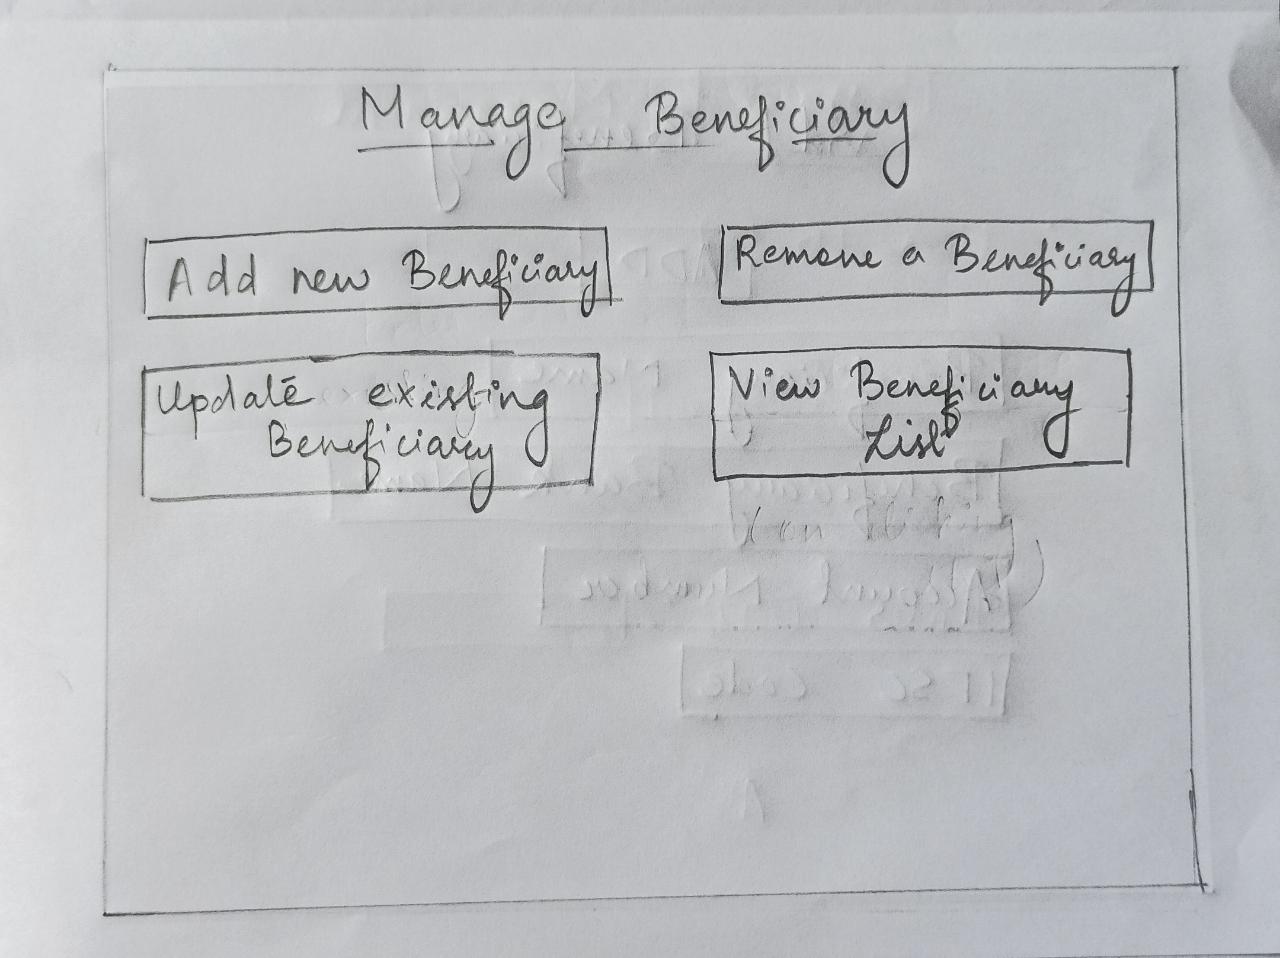 Manage Beneficiary
Add new Beneficiary
Remove a Beneficiary
Update existing
Beneficiary
View Beneficiary
List